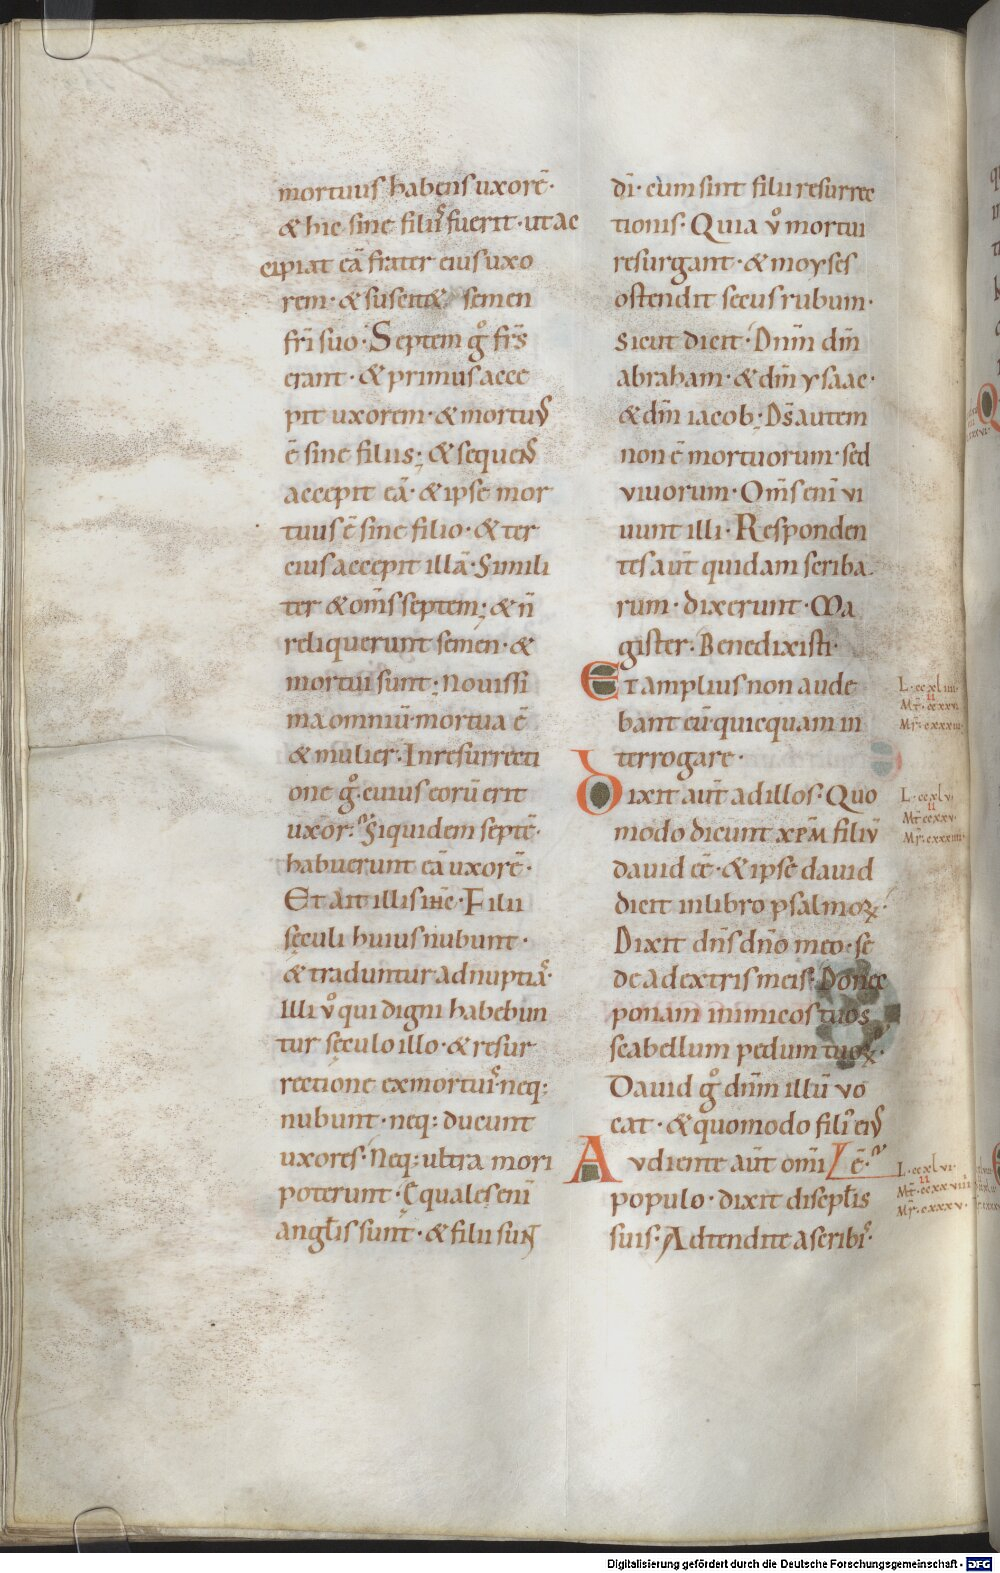 mortuus habens uxorē·
& hic sine filiis fuerit· ut ac
cipiat eā frater eius uxo
rem· & suscit& semen
frī suo· Septem g̊ frs̄
erant· & primus acce
pit uxorem· & mortuus
ē sine filiis; & sequens
accepit eā· & ipse mor
tuus ē sine filio· & ter
cius accepit illā· Simili
ter & om̄s septem; & n̄
reliquerunt semen· &
mortui sunt; Novissi
ma omniū mortua ē
& mulier· In resurrecti
one g̊· cuius eorū erit
uxor· Siquidem septē·
habuerunt eā uxorē·
Et ait illis ihc̄· Filii
sęculi huius nubunt·
& traduntur ad nuptias·
Illi v̊ qui digni habebun
tur sęculo illo· & resur
rectione ex mortuis· neq;
nubunt· neq; ducunt
uxores· Neq; ultra mori
poterunt· Ęquales enī
anglis sunt· & filii sunt
dī· cum sint filii resurrec
tionis· Quia v̊ mortui
resurgant· & moyses
ostendit secus rubum·
Sicut dicit· Dnm̄ dm̄
abraham· & dm̄ ysaac·
& dm̄ iacob; Ds̄ autem
non ē mortuorum· sed
vivorum· Om̄s enī vi
vunt illi· Responden
tes aūt quidam scriba
rum· dixerunt· Ma
gister· Benedixisti·
Et amplius non aude
bant eū quicquam in
terrogare·
Dixit aūt ad illos· Quo
modo dicunt xpm̄ filiū
david eē· & ipse david
dicit in libro psalmoꝝ·
Dixit dn̄s dn̄o meo· se
de a dextris meis· Donec
ponam inimicos tuos
scabellum pedum tuoꝝ·
David g̊ dnm̄ illū vo
cat· & quomodo filius eius
ē·
Audiente aūt omī
populo· dixit discipłis
suis· Adtendite a scribis·
L· ccxliiii·
Mr̄· cxxxiii
L· ccxlv·
Mt̄ ccxxv·
Mr̄· cxxxiiii·
L· ccxlvi·
Mt̄· ccxxviiii
Mr̄· cxxxv·
Digitalisierung gefördert durch die Deutsche Forschungsgemeinschaft - DFG